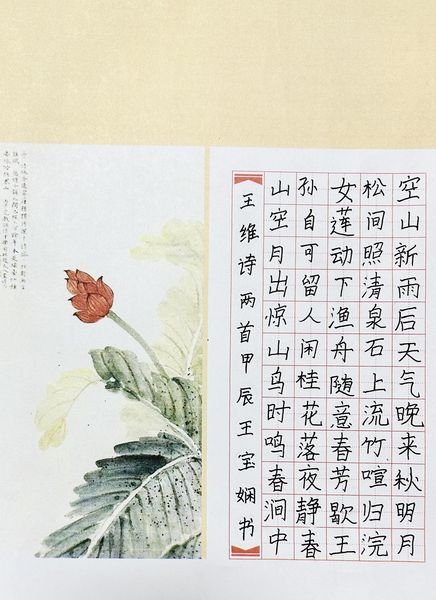 空山新雨后天气晚来秋明月
松间照清泉石上流竹喧归浣
女莲动下渔舟随意春芳歇王
孙自可留人闲桂花落夜静春
山空月出惊山鸟时鸣春涧中
王维诗两首甲辰王宝娴书